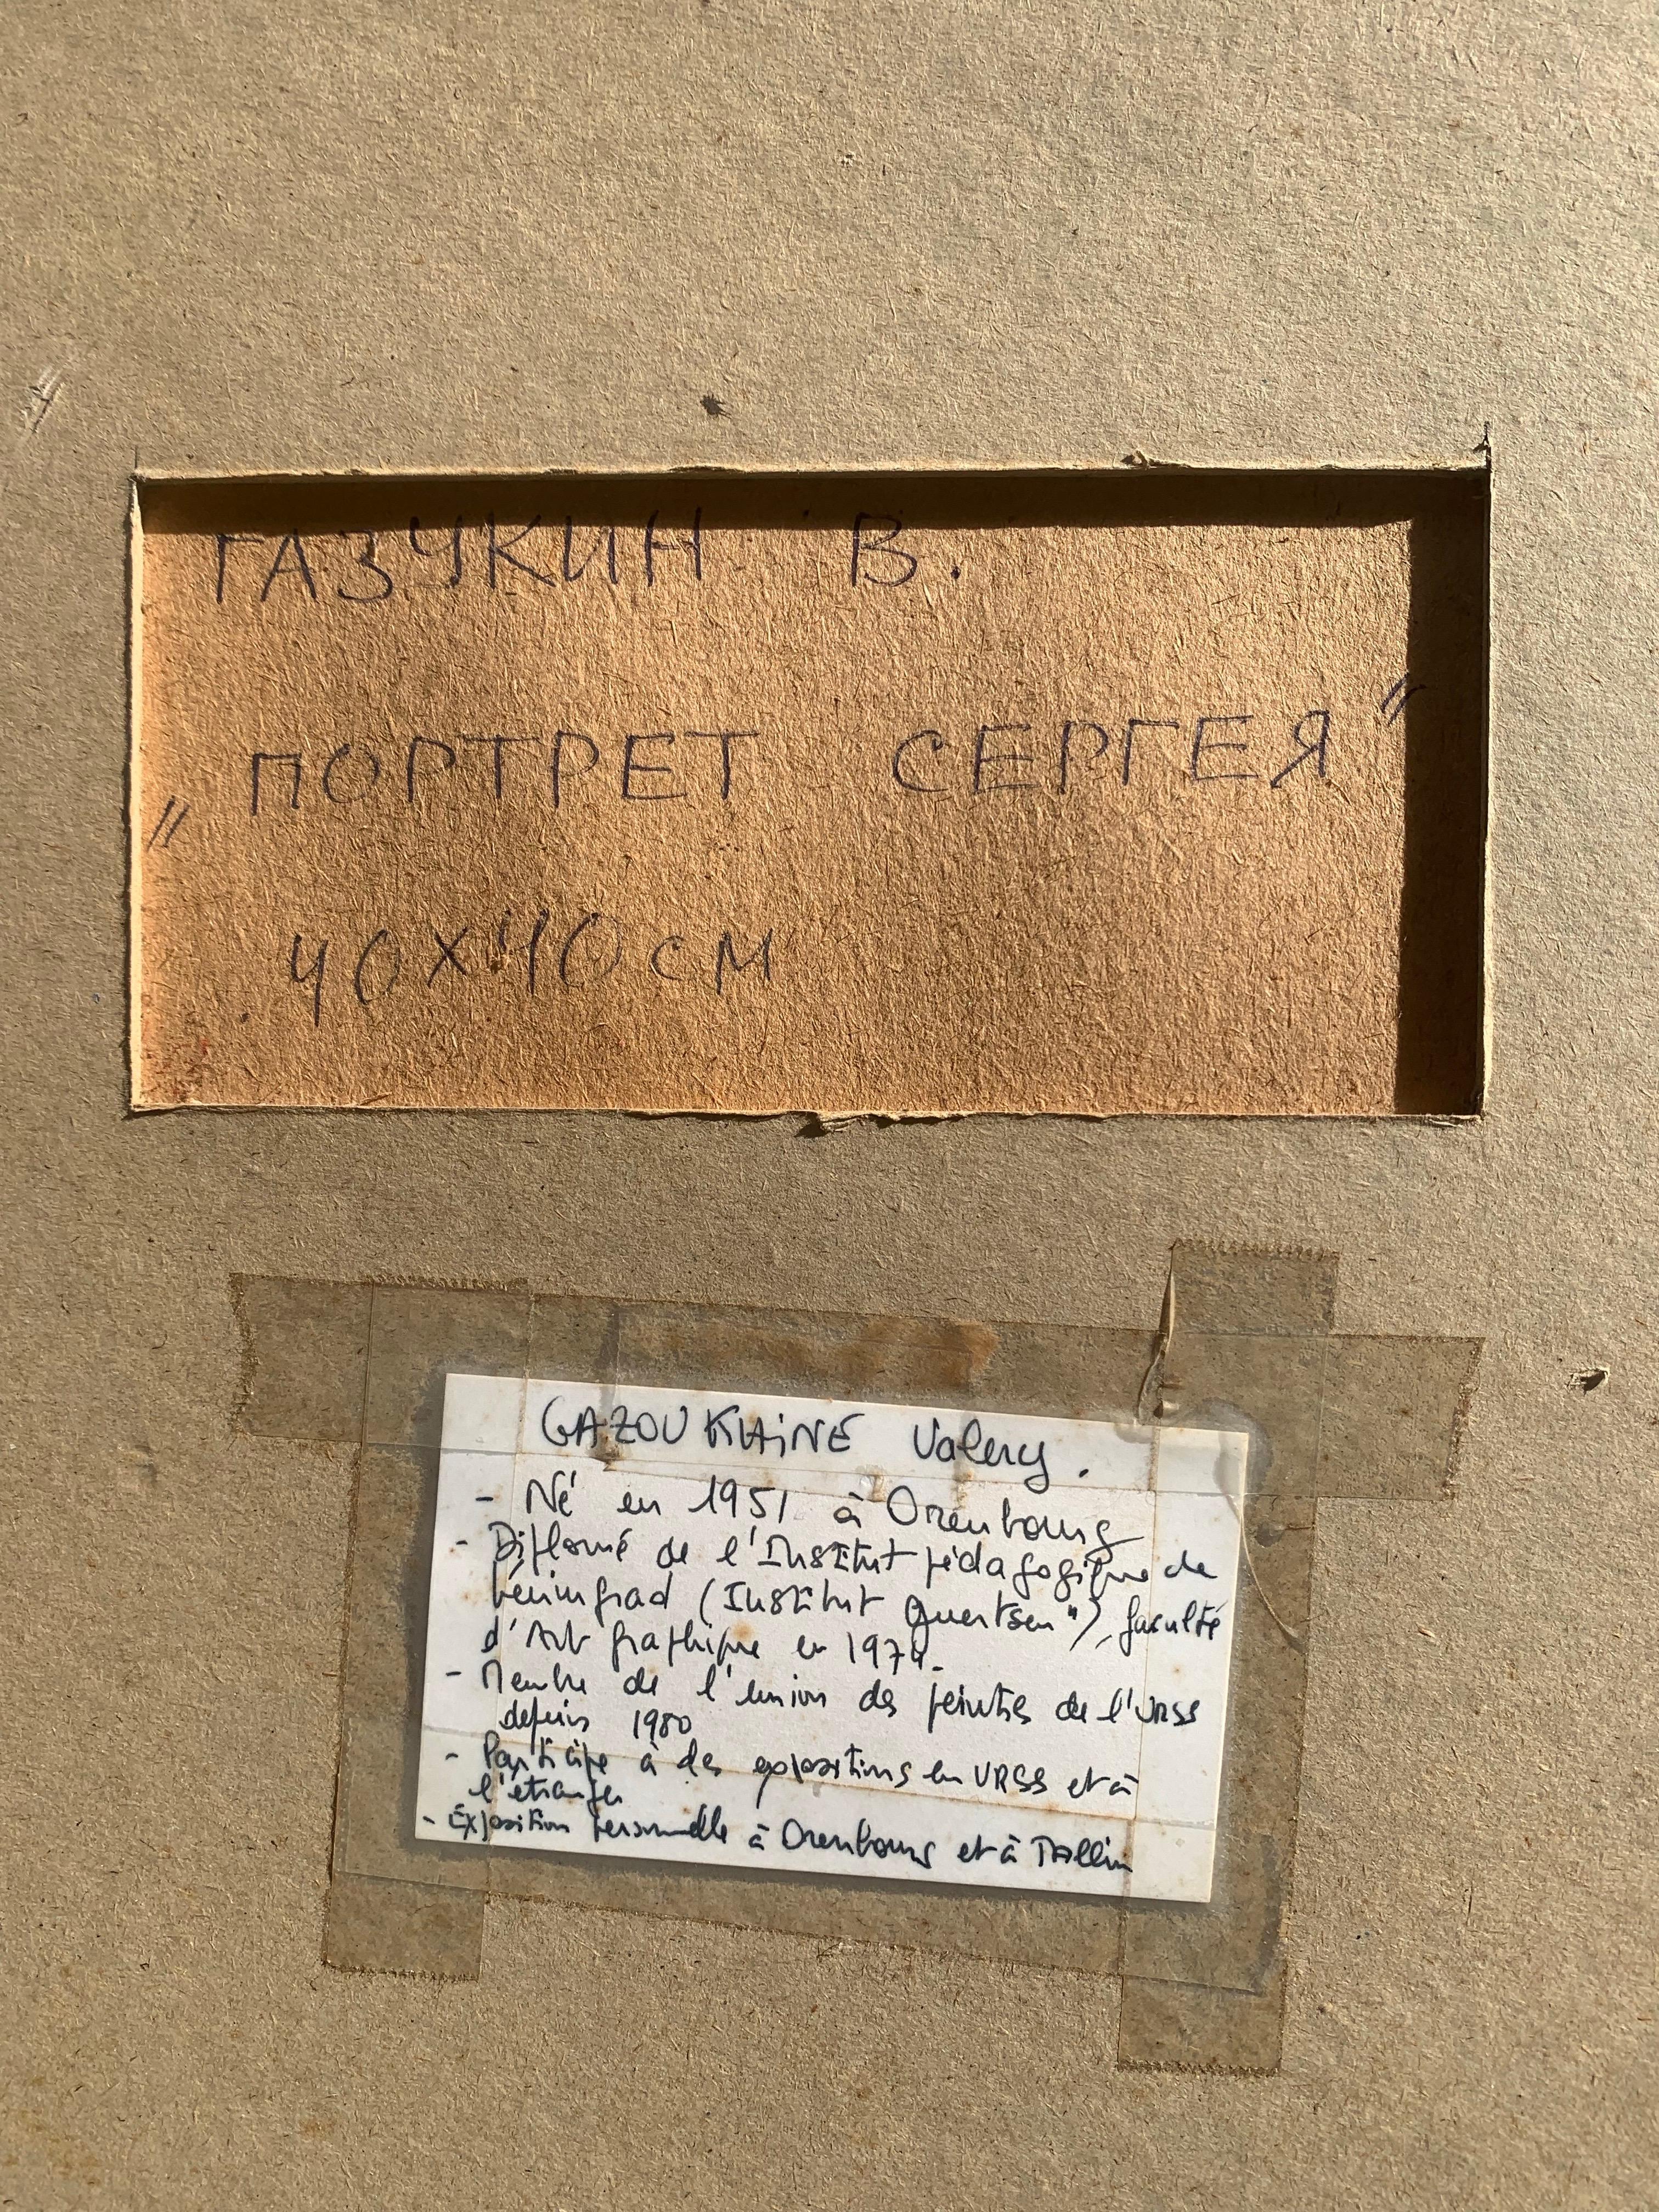 ГАЗУКИН В.
„ ПОРТРЕТ СЕРГЕЯ "
40X40 см
GAZOUKHiNE Valery.
- Né en 1951 à Orenbourg
- Diplomé de l'Institut pédagogique de
Léningrad (Institut Guertsen"), faculté
d'Art graphique en 1974.
- Membre de l'union des peintres de l'URSS
depuis 1980
- Participe à des expositions en URSS et à
l'étranger
- Exposition personnelle à Orenbourg et à Tallin